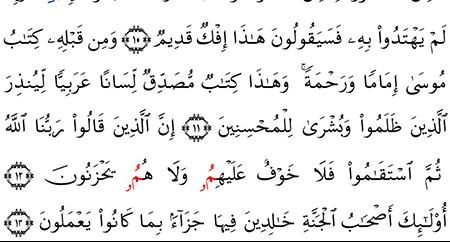 لَمْ يَهْتَدُوا۟ بِهِۦ فَسَيَقُولُونَ هَـٰذَا إِفْكٌ قَدِيمٌ ۝١٠ وَمِن قَبْلِهِۦ كِتَـٰبُ
مُوسَىٰ إِمَامًا وَرَحْمَةً ۚ وَهَـٰذَا كِتَـٰبٌ مُّصَدِّقٌ لِّسَانًا عَرَبِيًّا لِّيُنذِرَ
ٱلَّذِينَ ظَلَمُوا۟ وَبُشْرَىٰ لِلْمُحْسِنِينَ ۝١١ إِنَّ ٱلَّذِينَ قَالُوا۟ رَبُّنَا ٱللَّهُ
ثُمَّ ٱسْتَقَـٰمُوا۟ فَلَا خَوْفٌ عَلَيْهِمُۥ وَلَا هُمُۥ يَحْزَنُونَ ۝١٢
أُو۟لَـٰٓئِكَ أَصْحَـٰبُ ٱلْجَنَّةِ خَـٰلِدِينَ فِيهَا جَزَآءًۢ بِمَا كَانُوا۟ يَعْمَلُونَ ۝١٣